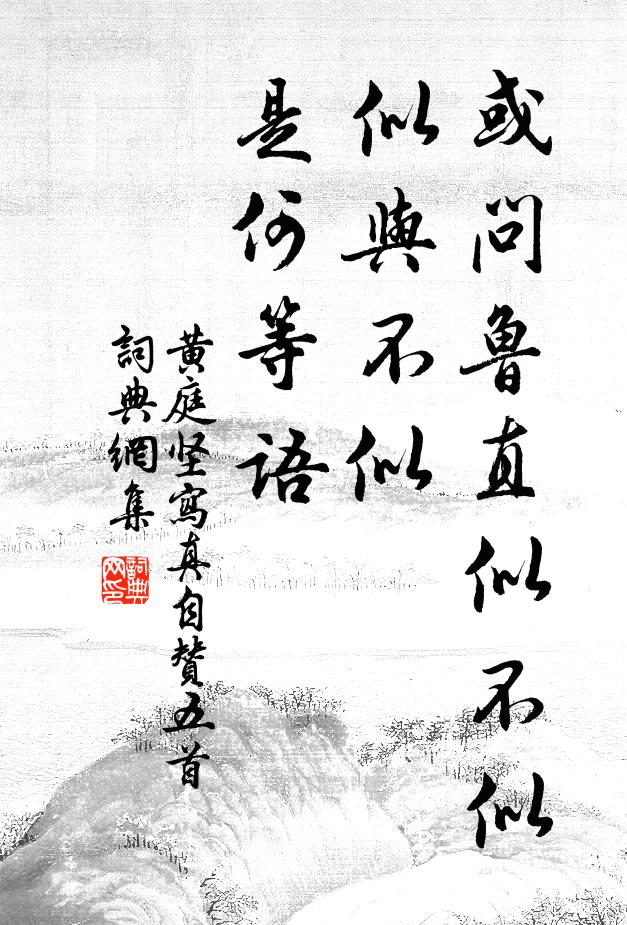 或问魯直似不似
似與不似
是何等語
黄庭坚寫真自赞五首
詞典網集
詞典網印